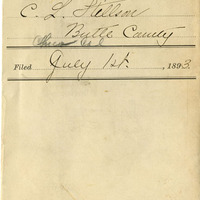 C. L. Stilson
Butte County
Chico Cal
Filed July 1st. , 1893.